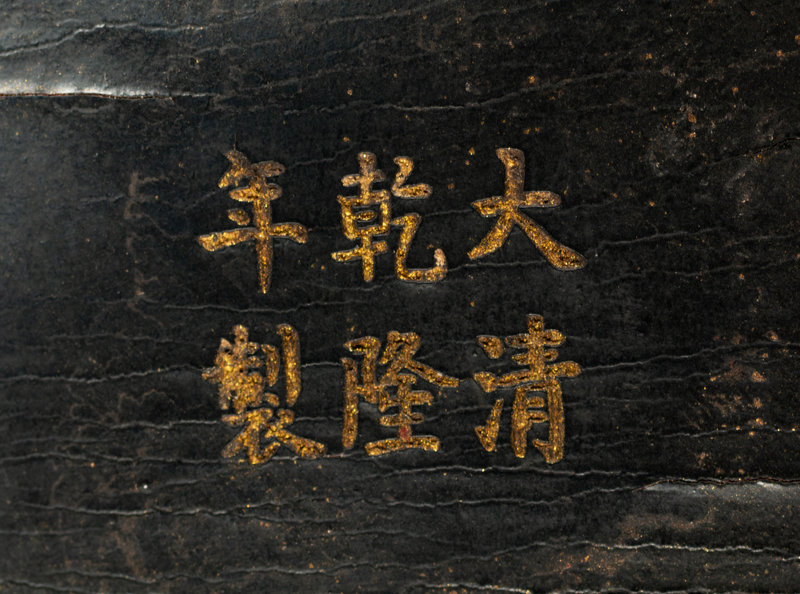 大清
乾隆
年製